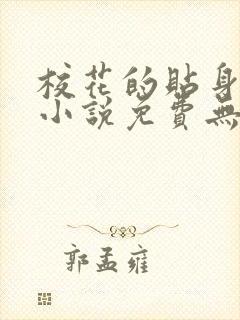 校花的貼身
小說免費無
郭孟雍